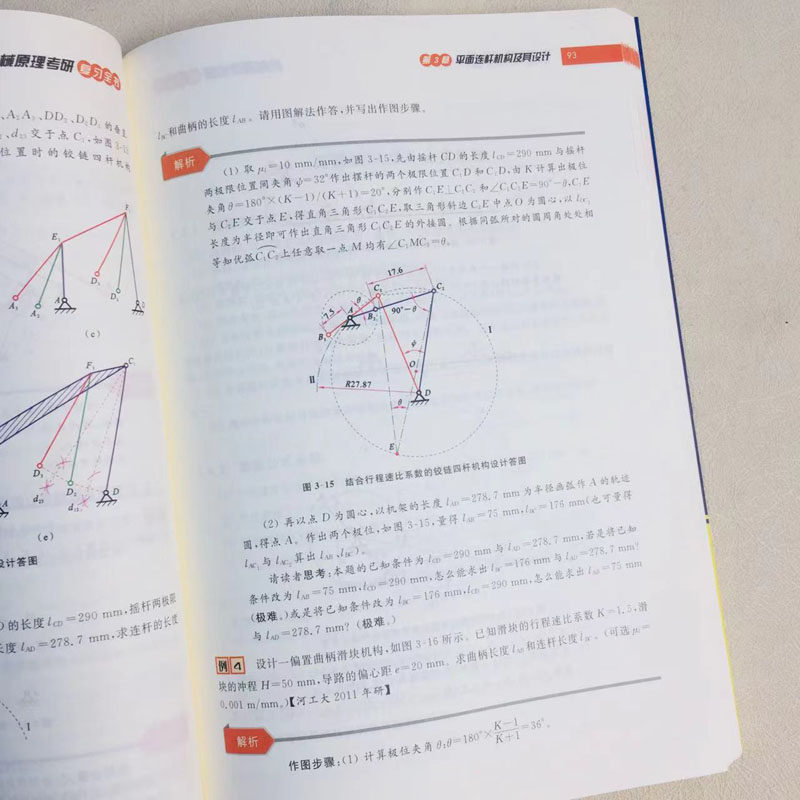 械原理考研 复习全书
、A₂A₃、DD₂、D₂D₃ 的垂直
、d₂₃ 交于点 C₁,如图 3-13
位置时的铰链四杆机构
E₁
F₁
A₁
A₂
A
D₃
D₂
D
(c)
F₁
C₁
D₃
d₂₃
D₂
d₁₂
D
A
(e)
设计答图
D 的长度 l_CD=290 mm,摇杆两极限
长度 l_AD=278.7 mm,求连杆的长度
I
第 3 章 平面连杆机构及其设计 93
l_BC和曲柄的长度 l_AB。请用图解法作答,并写出作图步骤。
解析
(1) 取 μ_l=10 mm/mm,如图 3-15,先由摇杆 CD 的长度 l_CD=290 mm 与摇杆
两极限位置间夹角 ψ=32°作出摆杆的两个极限位置 C₁D 和 C₂D,由 K 计算出极位
夹角 θ=180°×(K−1)/(K+1)=20°,分别作 C₁E⊥C₁C₂ 和∠C₁C₂E=90°−θ,C₁E
与 C₂E 交于点 E,得直角三角形 C₁C₂E,取三角形斜边 C₂E 中点 O 为圆心,以 l_OC₁
长度为半径即可作出直角三角形 C₁C₂E 的外接圆。根据同弧所对的圆周角处处相
等知优弧C₁C₂上任意取一点 M 均有∠C₁MC₂=θ。
17.6
C₂
C₁
7.5
θ
A
B₂
B₁
90°−θ
I
ψ
II
O
R27.87
D
θ
E
图 3-15 结合行程速比系数的铰链四杆机构设计答图
(2) 再以点 D 为圆心,以机架的长度 l_AD=278.7 mm 为半径画弧作 A 的轨迹
圆,得点 A。作出两个极位,如图 3-15,量得 l_AB=75 mm,l_BC=176 mm(也可量得
l_AC₁与 l_AC₂算出 l_AB、l_BC)。
请读者思考:本题的已知条件为 l_CD=290 mm 与 l_AD=278.7 mm,若是将已知
条件改为 l_AB=75 mm,l_CD=290 mm,怎么能求出 l_BC=176 mm 与 l_AD=278.7 mm?
(极难。)或是将已知条件改为 l_BC=176 mm,l_CD=290 mm,怎么能求出 l_AB=75 mm
与 l_AD=278.7 mm?(极难。)
例 4 设计一偏置曲柄滑块机构,如图 3-16 所示。已知滑块的行程速比系数 K=1.5,滑
块的冲程 H=50 mm,导路的偏心距 e=20 mm。求曲柄长度 l_AB和连杆长度 l_BC。(可选 μ_l=
0.001 m/mm。)【河工大 2011 年研】
解析
作图步骤:(1) 计算极位夹角 θ:θ=180°×(K−1)/(K+1)=36°。